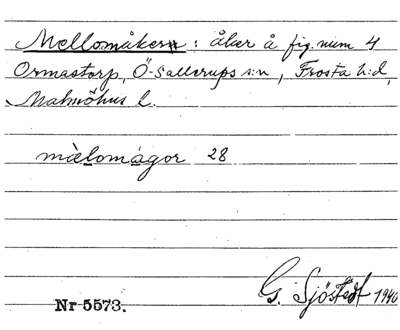 Mellomåkern : åker å fig. num 4
Ormastorp, Ö-Sallerups s:n, Frosta h:d,
Malmöhus l.
mìelomågor 28
G. Sjöstedt 1940
Nr 5573.